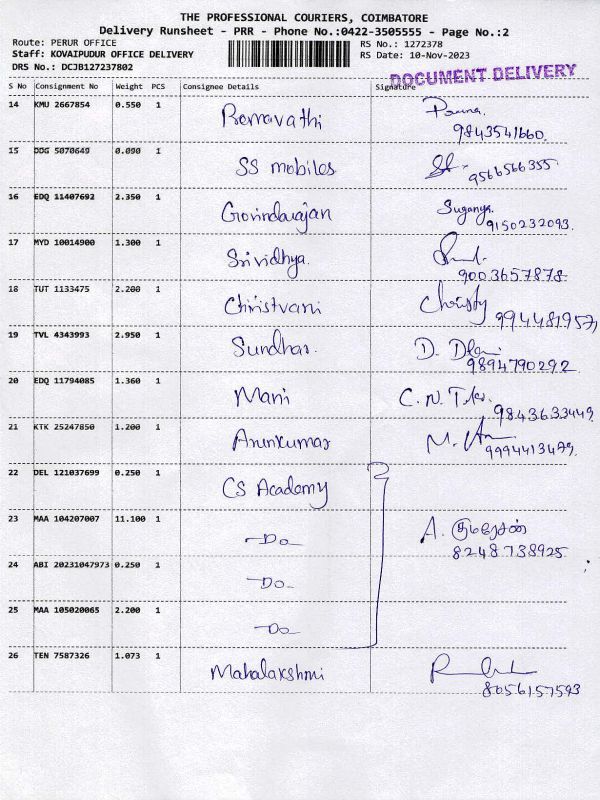 THE PROFESSIONAL COURIERS, COIMBATORE
Delivery Runsheet - PRR - Phone No.:0422-3505555 - Page No.:2
Route: PERUR OFFICE RS No.: 1272378
Staff: KOVAIPUDUR OFFICE DELIVERY RS Date: 10-Nov-2023
DRS No.: DCJB127237802 DOCUMENT DELIVERY
S No Consignment No Weight PCS Consignee Details Signature
14 KMU 2667854 0.550 1 Remavathi
9843541660
15 DDG 5070649 0.090 1 SS mobiles
9566566355
16 EDQ 11407692 2.350 1 Govindarajan Suganya
9150232093
17 MYD 10014900 1.300 1 Srividhya
9003657878
18 TUT 1133475 2.200 1 Christvani Christy
9944819571
19 TVL 4343993 2.950 1 Sundhar. D.
9894790292
20 EDQ 11794085 1.360 1 Mani C.N.
9843633449
21 KTK 25247850 1.200 1 Arunkumar M.
9994413479
22 DEL 121037699 0.250 1 CS Academy
23 MAA 104207007 11.100 1 -Do- A. குமரேசன்
8248738925
24 ABI 20231047973 0.250 1 -Do-
25 MAA 105020065 2.200 1 -Do-
26 TEN 7587326 1.073 1 Mahalakshmi
8056157593